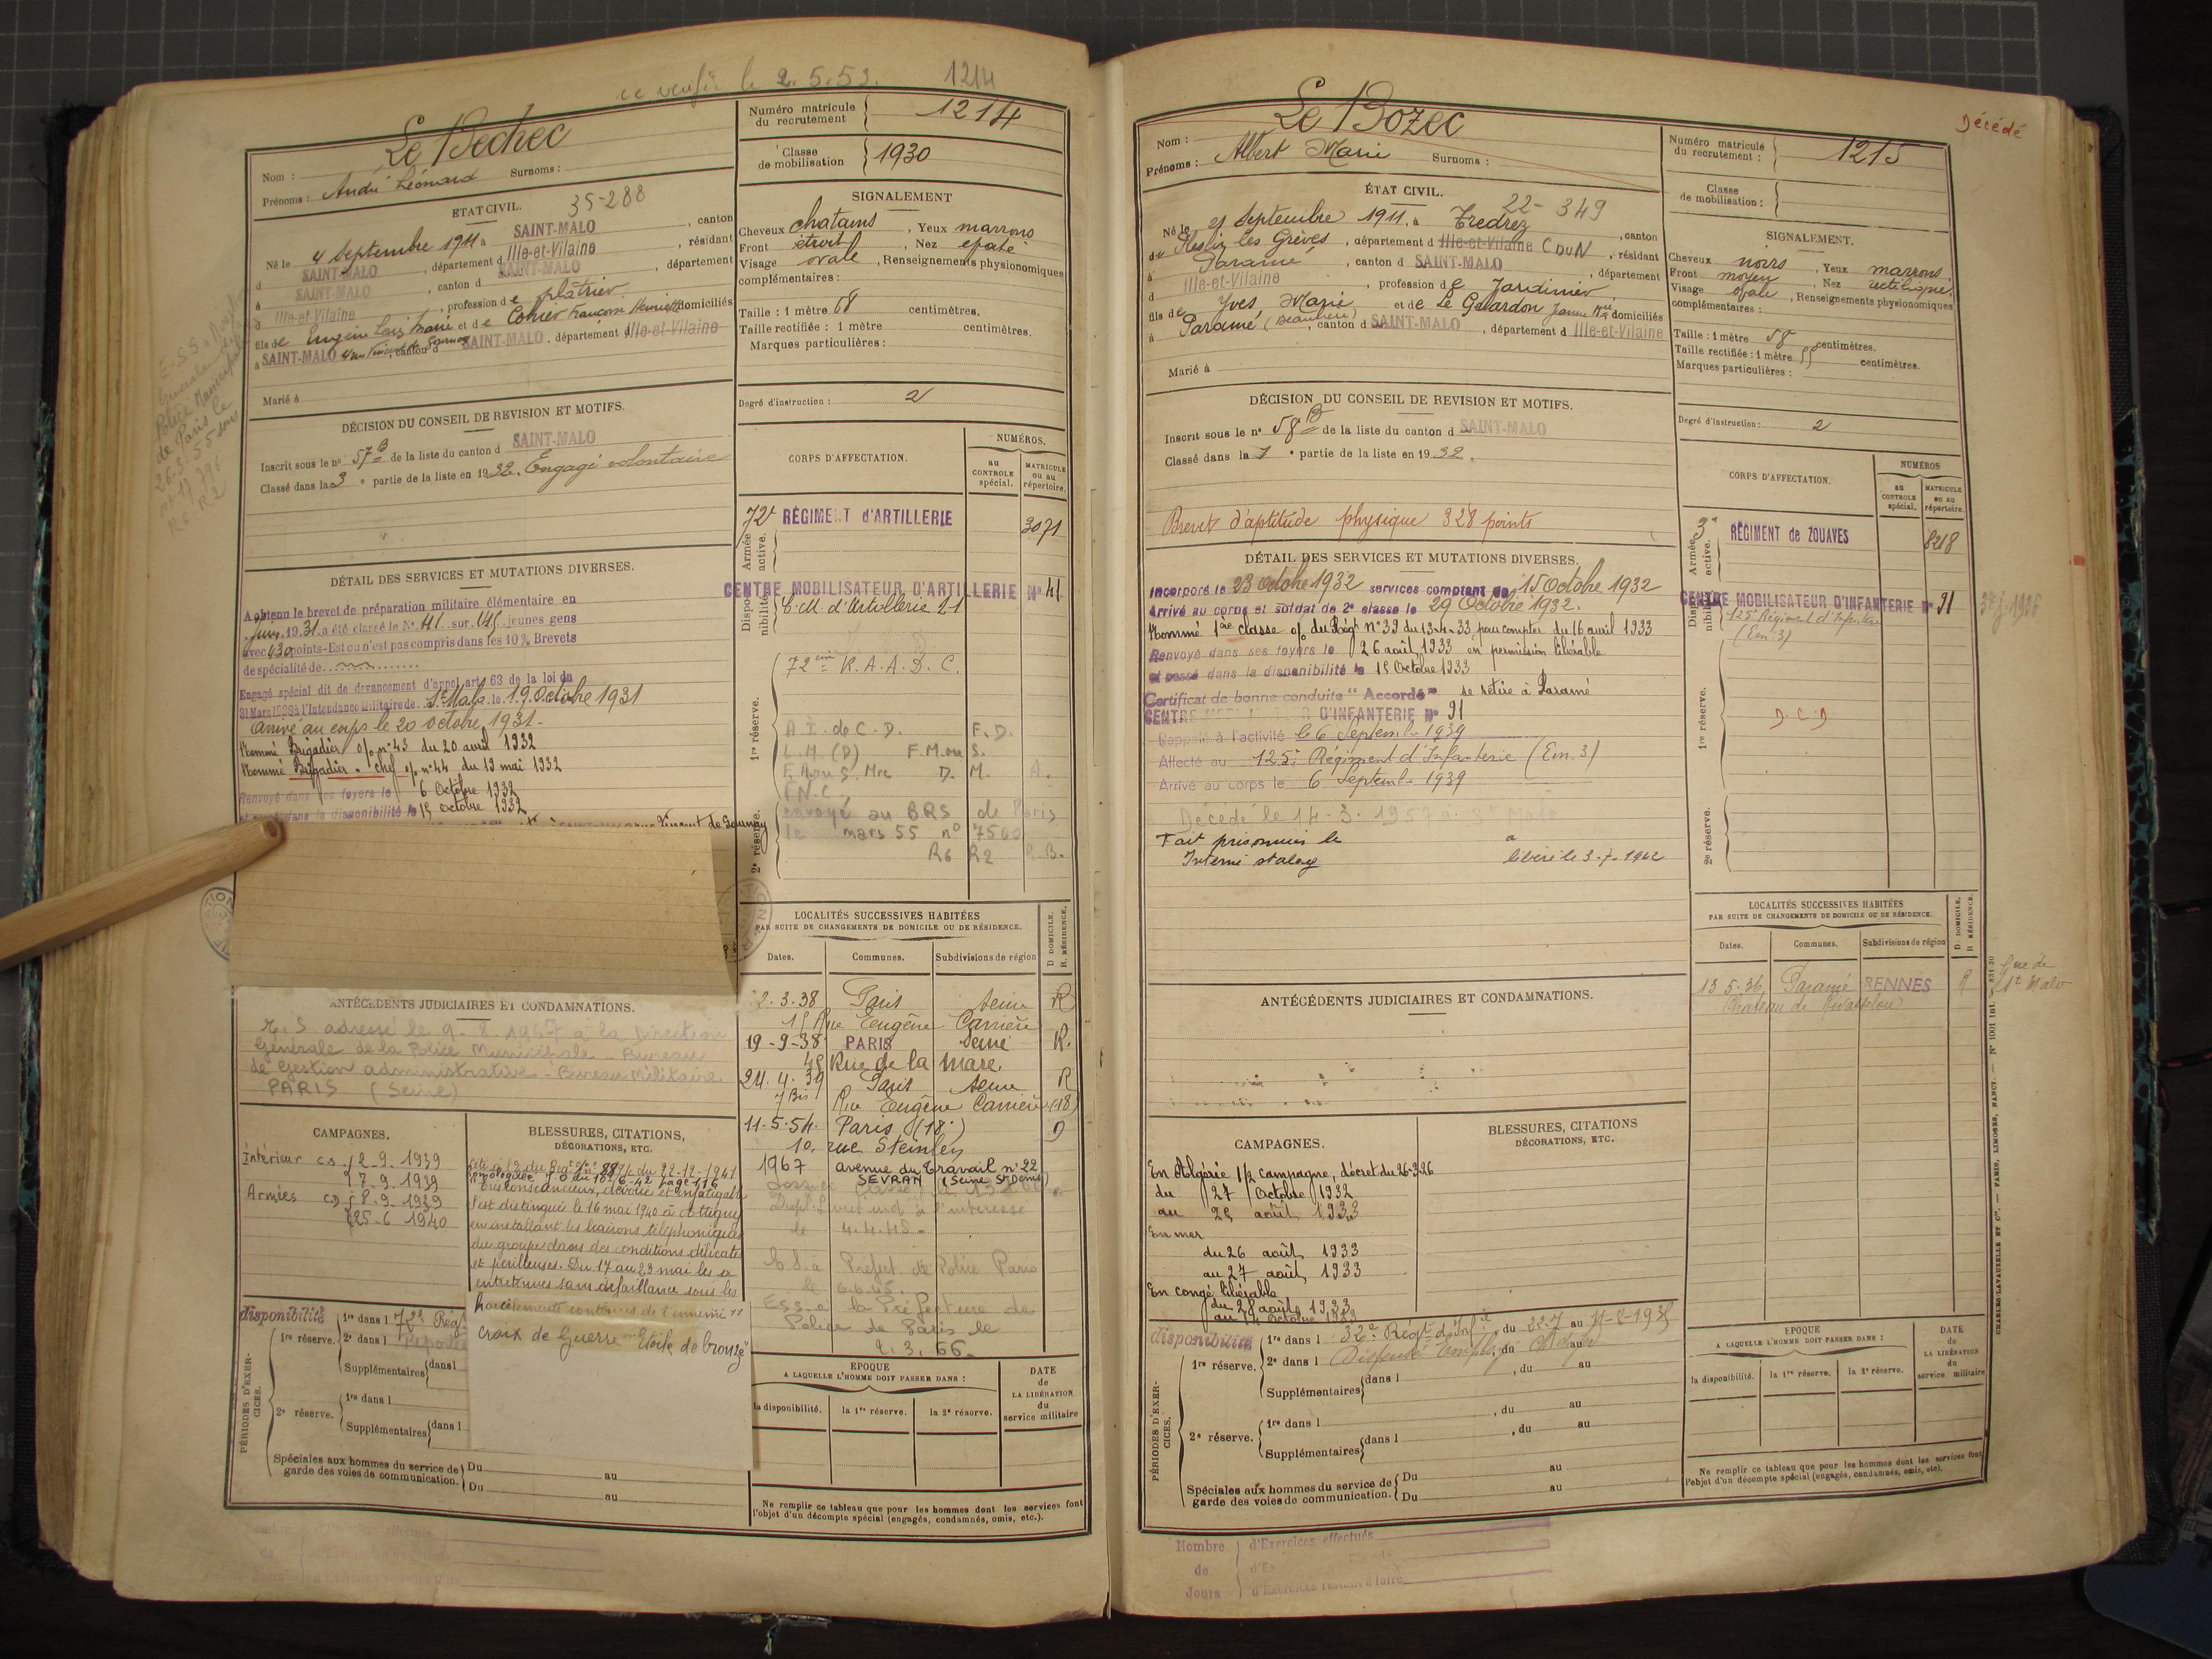 ce vérifié le 2.5.53. 1214
Nom : Le Bechec
Prénoms : André Léonard Surnoms :
Numéro matricule du recrutement 1214
Classe de mobilisation 1930
ETAT CIVIL. 35-288
Né le 4 Septembre 1911 à SAINT-MALO, canton
d SAINT-MALO, département d Ille-et-Vilaine, résidant
à SAINT-MALO, canton d SAINT-MALO, département
d Ille-et-Vilaine, profession de plâtrier
fils de Eugène Louis Marie et de domiciliés
à SAINT-MALO, canton d SAINT-MALO, département d Ille-et-Vilaine
Marié à
SIGNALEMENT
Cheveux chatains, Yeux marrons
Front étroit, Nez épaté
Visage ovale, Renseignements physionomiques
complémentaires :
Taille : 1 mètre 68 centimètres.
Taille rectifiée : 1 mètre centimètres.
Marques particulières :
Degré d'instruction : 2
DÉCISION DU CONSEIL DE REVISION ET MOTIFS.
Inscrit sous le nº 57 B de la liste du canton d SAINT-MALO
Classé dans la 3e partie de la liste en 1932. Engagé volontaire
CORPS D'AFFECTATION.
NUMÉROS.
au CONTROLE spécial.
MATRICULE ou au répertoire.
Armée active.
72e RÉGIMENT d'ARTILLERIE 3071
Disponibilité
CENTRE MOBILISATEUR D'ARTILLERIE Nº 41
C.M. d'Artillerie 21
1re réserve.
72eme R.A.A.D.C.
A.I. de C.D. F.D.
L.M. (D) F.M. ou S.
envoyé au BRS de Paris
le mars 55 nº 7500
R6 R2
2e réserve.
DÉTAIL DES SERVICES ET MUTATIONS DIVERSES.
A obtenu le brevet de préparation militaire élémentaire en
Juin 1931 a été classé le Nº 41 sur 145 jeunes gens
avec 430 points-Est ou n'est pas compris dans les 10% Brevets
de spécialité de
Engagé spécial dit de devancement d'appel art. 63 de la loi du
31 Mars 1928 à l'Intendance Militaire de St Malo le 19 Octobre 1931
Arrivé au corps le 20 octobre 1931.
Nommé Brigadier o/ nº 43 du 20 avril 1932
Nommé Brigadier-chef o/ nº 44 du 19 mai 1932
Renvoyé dans ses foyers le 6 Octobre 1932
et passé dans la disponibilité le 15 octobre 1932
LOCALITÉS SUCCESSIVES HABITÉES
PAR SUITE DE CHANGEMENTS DE DOMICILE OU DE RÉSIDENCE.
D DOMICILE. R RÉSIDENCE.
Dates. Communes. Subdivisions de région
2.3.38 Paris Seine R
15 Rue Eugène Carrière
19-9-38 PARIS Seine R.
45 Rue de la Mare.
24.4.39 Paris Seine R
7 Bis Rue Eugène Carrière (18)
11.5.54. Paris (18e) D
10, rue Steinlen
1967 avenue du Travail nº 22
SEVRAN (Seine St Denis)
le 4.4.45.
Préfect. de Police Paris
E.S.S. à la Préfecture de
Police de Paris le
2.3.66.
ANTÉCÉDENTS JUDICIAIRES ET CONDAMNATIONS.
E.S adressé le 9.8.1967 à la Direction
Générale de la Police Municipale - Bureau
de gestion administrative - Bureau Militaire
PARIS (Seine)
CAMPAGNES.
Intérieur CS 2-9-1939
7-9-1939
Armées CD 8-9-1939
25-6 1940
BLESSURES, CITATIONS,
DÉCORATIONS, ETC.
Très consciencieux, dévoué et infatigable
s'est distingué le 16 mai 1940 à Attigny
en installant les liaisons téléphoniques
du groupe dans des conditions délicates
et périlleuses. Du 17 au 23 mai les a
entretenues sans défaillance sous les
harcèlements continus de l'ennemi"
croix de Guerre Etoile de bronze"
PÉRIODES D'EXERCICES.
disponibilité
1re réserve. 1re dans l 72e Rég
2e dans l
Supplémentaires dans l
2e réserve. 1re dans l
Supplémentaires dans l
Spéciales aux hommes du service de garde des voies de communication. Du au
Du au
EPOQUE
A LAQUELLE L'HOMME DOIT PASSER DANS :
la disponibilité. la 1re réserve. la 2e réserve.
DATE de LA LIBÉRATION du service militaire
Ne remplir ce tableau que pour les hommes dont les services font
l'objet d'un décompte spécial (engagés, condamnés, omis, etc.).
Décédé
Nom : Le Bozec
Prénoms : Albert Marie Surnoms :
Numéro matricule du recrutement : 1215
Classe de mobilisation :
ÉTAT CIVIL. 22-349
Né le 21 Septembre 1911, à Tredrez, canton
de Plestin les Grèves, département d Ille-et-Vilaine CDUN, résidant
à Paramé, canton d SAINT-MALO, département
d Ille-et-Vilaine, profession de Jardinier,
fils de Yves Marie et de Le Gouardon Jeanne Mie domiciliés
à Paramé, canton d SAINT-MALO, département d Ille-et-Vilaine
Marié à
SIGNALEMENT.
Cheveux noirs, Yeux marrons.
Front moyen, Nez rectiligne.
Visage ovale, Renseignements physionomiques
complémentaires :
Taille : 1 mètre 58 centimètres.
Taille rectifiée : 1 mètre 55 centimètres.
Marques particulières :
Degré d'instruction : 2
DÉCISION DU CONSEIL DE REVISION ET MOTIFS.
Inscrit sous le nº 58 B de la liste du canton d SAINT-MALO
Classé dans la 1e partie de la liste en 1932.
Brevet d'aptitude physique 328 points
CORPS D'AFFECTATION.
NUMÉROS
au CONTROLE spécial.
MATRICULE ou au répertoire.
Armée active.
3e RÉGIMENT de ZOUAVES 8218
Disponibilité
CENTRE MOBILISATEUR D'INFANTERIE Nº 91
125e Régiment d'Infanterie
(Em. 3)
1re réserve.
D.C.D
2e réserve.
DÉTAIL DES SERVICES ET MUTATIONS DIVERSES.
Incorporé le 23 Octobre 1932 services comptent du 15 Octobre 1932
Arrivé au corps et soldat de 2e classe le 29 Octobre 1932.
Nommé 1ère classe o/ du Régt Nº 39 du 13-4-33 pour compter du 16 avril 1933
Renvoyé dans ses foyers le 26 août 1933 en permission libérable
et passé dans la disponibilité le 15 Octobre 1933
Certificat de bonne conduite "Accordé" se retire à Paramé
CENTRE MOBILISATEUR D'INFANTERIE Nº 91
Rappelé à l'activité le 6 Septemb. 1939
Affecté au 125e Régiment d'Infanterie (Em. 3)
Arrivé au corps le 6 Septemb. 1939
Décédé le 14-3-1953 à St Malo
Fait prisonnier le a
Interné stalag libéré le 3-7-1942
LOCALITÉS SUCCESSIVES HABITÉES
PAR SUITE DE CHANGEMENTS DE DOMICILE OU DE RÉSIDENCE.
D DOMICILE. R RÉSIDENCE.
Dates. Communes. Subdivisions de région
13-5-36 Paramé RENNES R
ANTÉCÉDENTS JUDICIAIRES ET CONDAMNATIONS.
CAMPAGNES.
En Algérie 1/2 campagne, décret du 26-3-26
du 27 Octobre 1932
au 25 août 1933
En mer
du 26 août 1933
au 27 août 1933
En congé libérable
du 28 août 1933
au 14 octobre 1933
BLESSURES, CITATIONS
DÉCORATIONS, ETC.
PÉRIODES D'EXERCICES.
disponibilité
1re réserve. 1re dans l 32e Régt d'Infie, du 22-7 au
2e dans l Dispensé, du au
Supplémentaires dans l, du au
2e réserve. 1re dans l, du au
Supplémentaires dans l, du au
Spéciales aux hommes du service de garde des voies de communication. Du au
Du au
EPOQUE
A LAQUELLE L'HOMME DOIT PASSER DANS :
la disponibilité. la 1re réserve. la 2e réserve.
DATE de LA LIBÉRATION du service militaire
Ne remplir ce tableau que pour les hommes dont les services font
l'objet d'un décompte spécial (engagés, condamnés, omis, etc).
CHARLES-LAVAUZELLE ET Cie. — PARIS, LIMOGES, NANCY.
Nombre de Jours
d'Exercices effectués
d'Exercices restant à faire